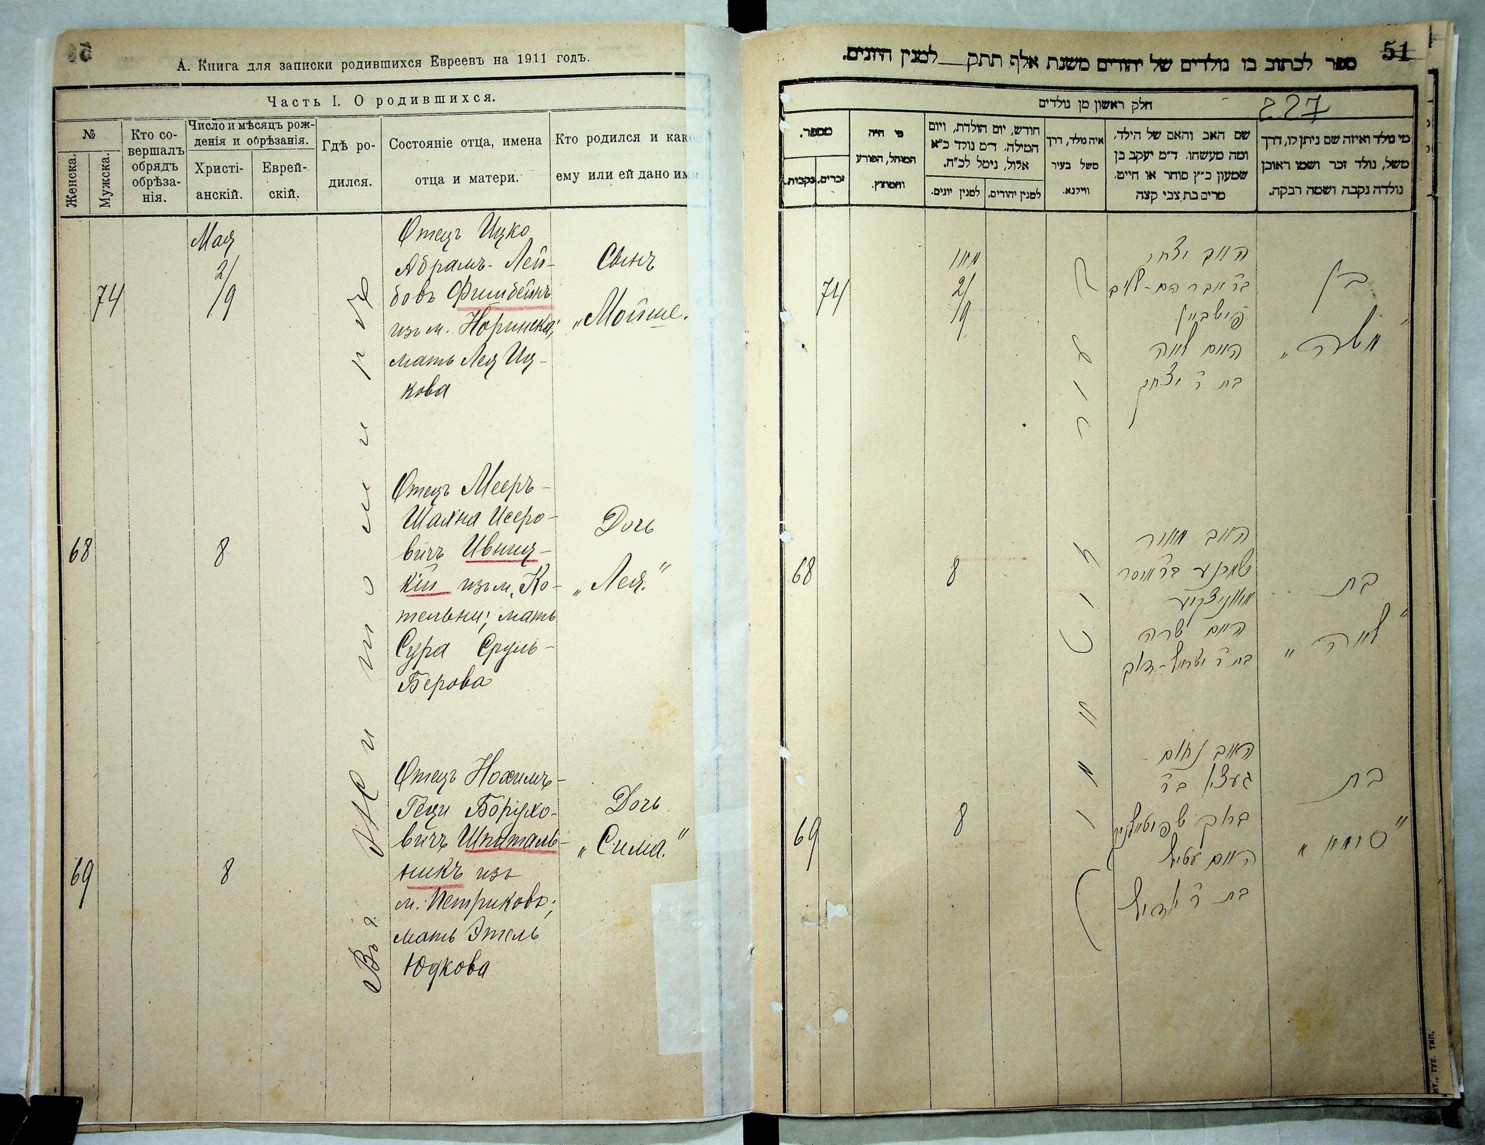 А. Книга для записки родившихся Евреевъ на 1911 годъ.
Часть I. О родившихся.
№
Женска.
Мужска.
Кто со-
вершалъ
обрядъ
обрѣза-
нія.
Число и мѣсяцъ рож-
денія и обрѣзанія.
Христі-
анскій.
Еврей-
скій.
Гдѣ ро-
дился.
Состояніе отца, имена
отца и матери.
Кто родился и как
ему или ей дано им
74
Мая
2/
/9
Въ г. Житомирѣ
Отецъ Ицко
Абрамъ-Лей-
бовъ Фишбейнъ
изъ м. Норинска;
мать Лея Иц-
кова
Сынъ
„Мойше.
68
8
Отецъ Мееръ-
Шаина Исеро-
вичъ Ивниц-
кій изъ м. Ко-
тельни; мать
Сура Сруль-
Берова
Дочь
„Лея."
69
8
Отецъ Нохимъ-
Геци Борухо-
вичъ Шпиталь-
никъ изъ
м. Петрикова;
мать Этель
Юдкова
Дочь
„Сима."
ספר לכתוב בו נולדים של יהודים משנת אלף תתק__למנין היונים.
51
חלק ראשון מן נולדים
227
מספר.
נקבות.
זכרים.
מי היה
המוהל, הפורע
והמוצץ.
חודש, יום הולדת, ויום
המילה. ד״מ נולד כ״א
אלול, נימל לכ״ח.
למנין יונים.
למנין יהודים.
איה נולד, דרך
משל בעיר
ווילנא.
שם האב והאם של הילד,
ומה מעשהו. ד״מ יעקב בן
שמעון כ״ץ סוחר או חייט.
מרים בת צבי קצה
מי נולד ואיזה שם ניתן לו, דרך
משל, נולד זכר ושמו ראובן
נולדה נקבה ושמה רבקה.
74
מאי
2/
/9
זיטאמיר
האב יצחק
בר אברהם-לייב
פישביין
האם לאה
בת ר יצחק
בן
„משה"
68
8
האב מאיר
האם שרה
בת
„לאה"
69
8
האב נחום
געצל בר
ברוך שפיטאלניק
האם עטיל
בת ר יודל
בת
„סימא"